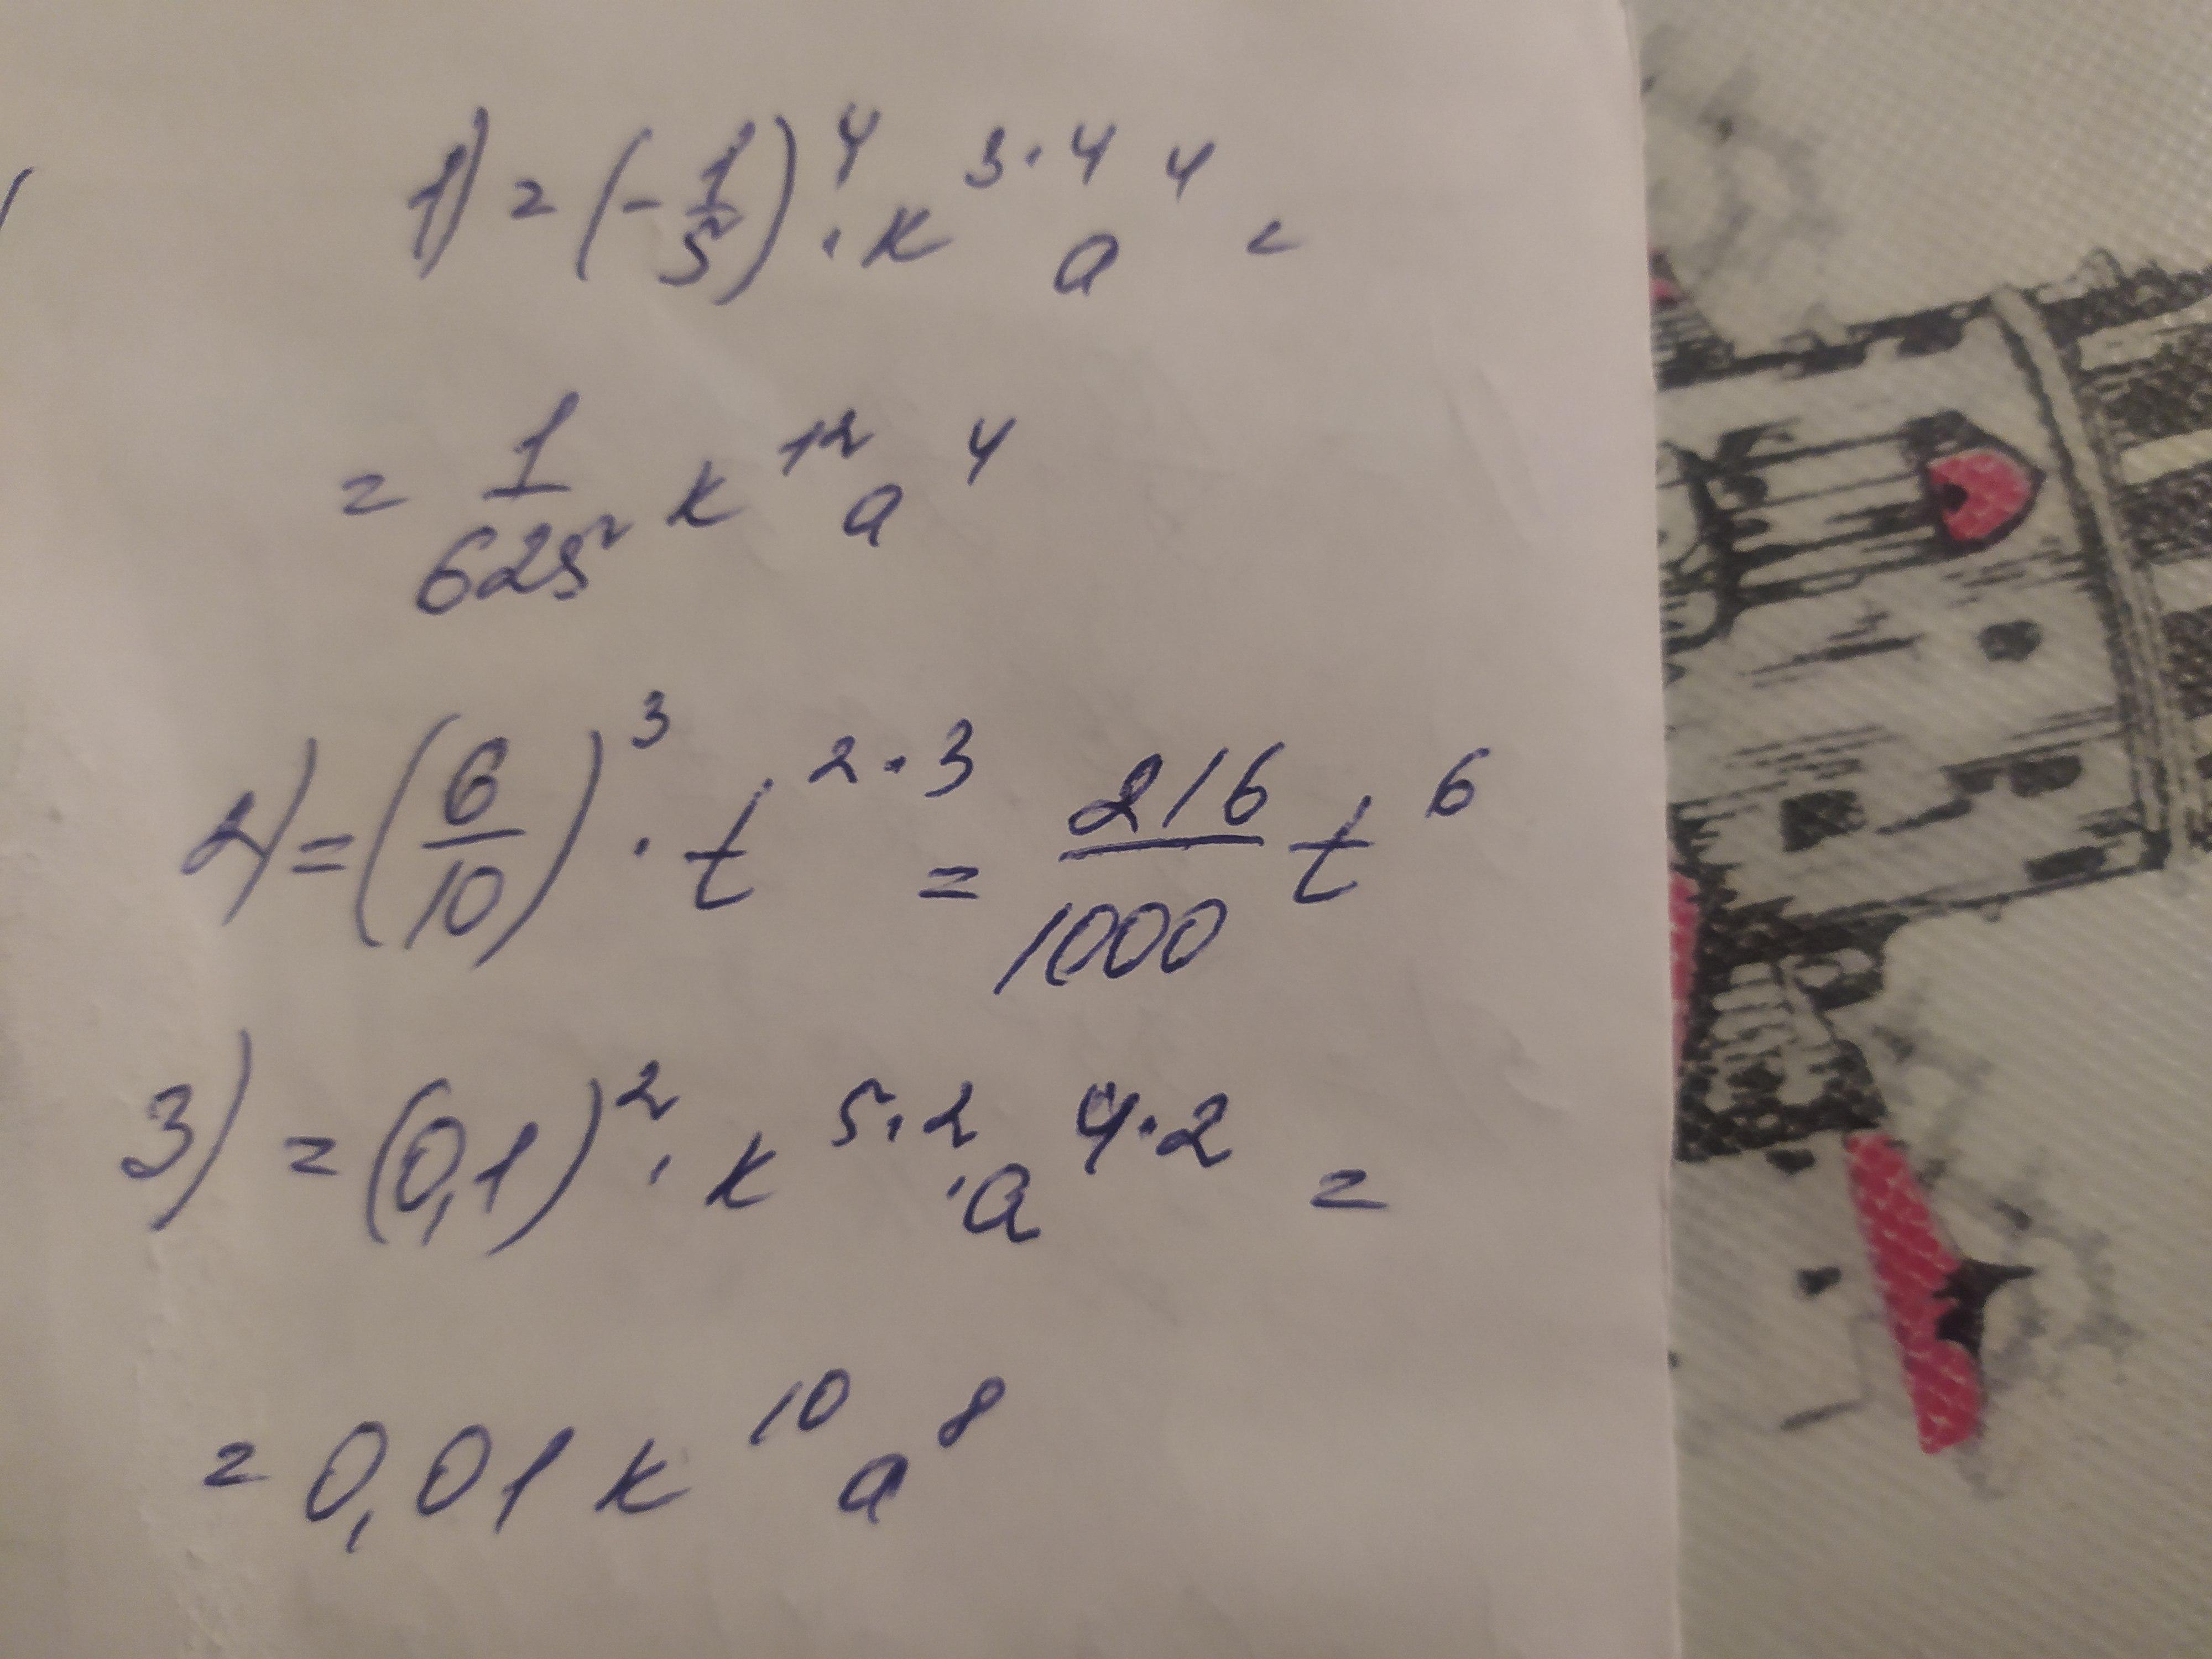 1) = (-1/5)⁴ · k³·⁴ a⁴ =
= 1/625 k¹² a⁴
2) = (6/10)³ · t²·³ = 216/1000 t⁶
3) = (0,1)² · k⁵·² · a⁴·² =
= 0,01 k¹⁰ a⁸